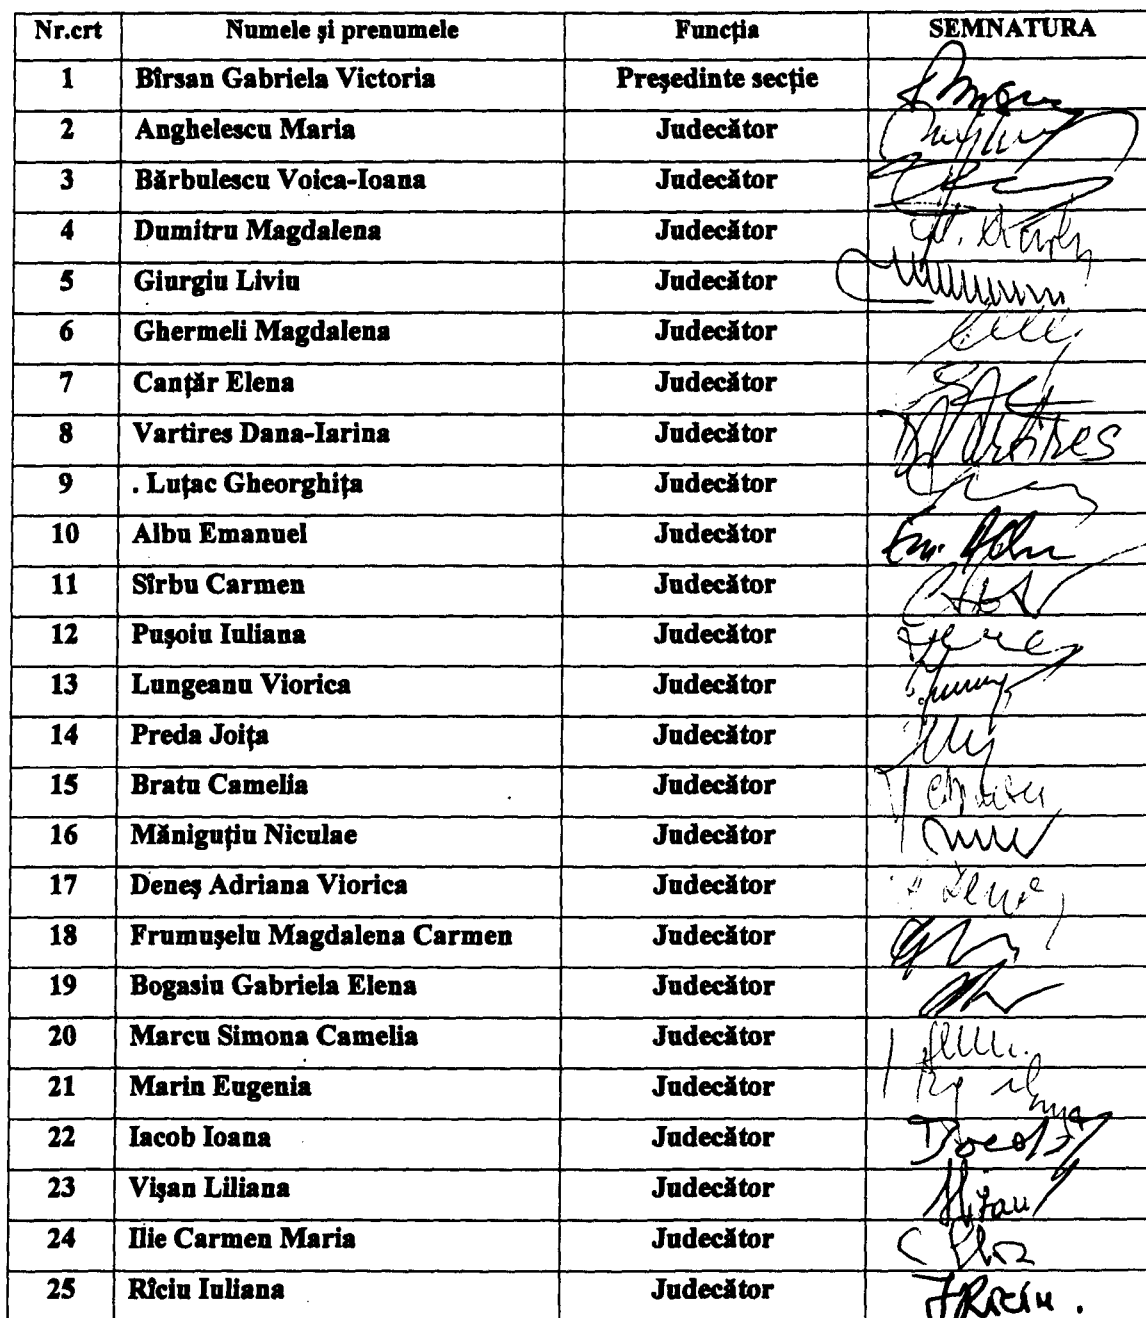 Nr.crt Numele şi prenumele Funcţia SEMNATURA
1 Bîrsan Gabriela Victoria Preşedinte secţie
2 Anghelescu Maria Judecător
3 Bărbulescu Voica-Ioana Judecător
4 Dumitru Magdalena Judecător
5 Giurgiu Liviu Judecător
6 Ghermeli Magdalena Judecător
7 Canţăr Elena Judecător
8 Vartires Dana-Iarina Judecător DVartires
9 . Luţac Gheorghiţa Judecător
10 Albu Emanuel Judecător
11 Sîrbu Carmen Judecător
12 Puşoiu Iuliana Judecător
13 Lungeanu Viorica Judecător
14 Preda Joiţa Judecător
15 Bratu Camelia Judecător
16 Măniguţiu Niculae Judecător
17 Deneş Adriana Viorica Judecător
18 Frumuşelu Magdalena Carmen Judecător
19 Bogasiu Gabriela Elena Judecător
20 Marcu Simona Camelia Judecător
21 Marin Eugenia Judecător
22 Iacob Ioana Judecător
23 Vişan Liliana Judecător
24 Ilie Carmen Maria Judecător
25 Rîciu Iuliana Judecător